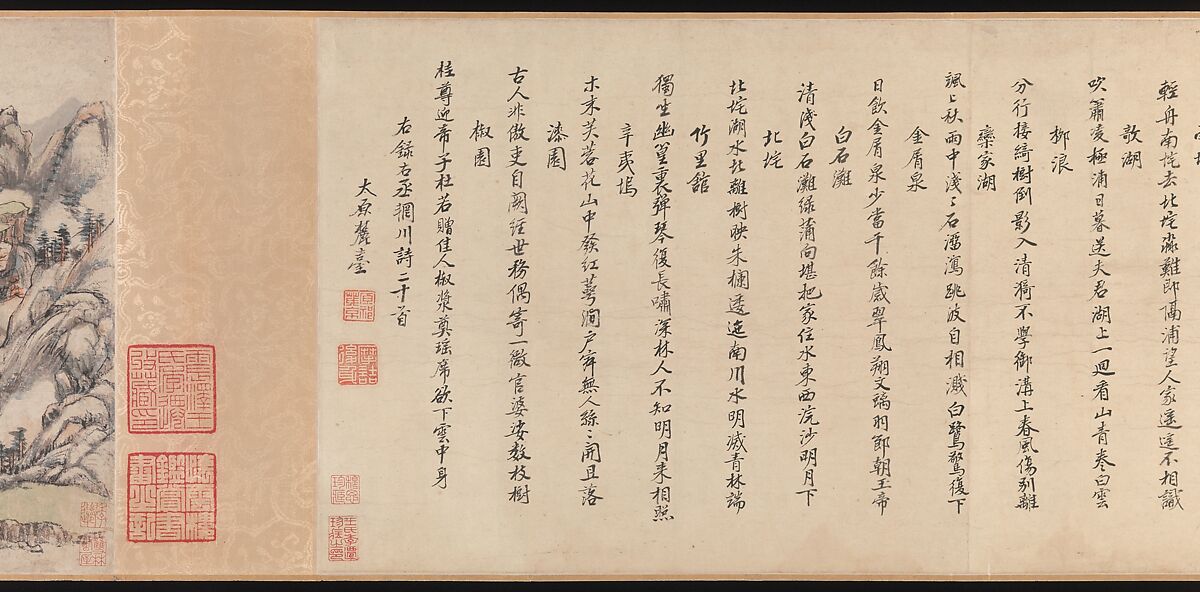 輕舟南垞去北垞淼難即隔浦望人家遙遙不相識
欹湖
吹簫凌極浦日暮送夫君湖上一迴看山青卷白雲
柳浪
分行接綺樹倒影入清漪不學御溝上春風傷別離
欒家湖
颯々秋雨中淺々石溜瀉跳波自相濺白鷺驚復下
金屑泉
日飲金屑泉少當千餘歲翠鳳翔文螭羽節朝玉帝
白石灘
清淺白石灘綠蒲向堪把家住水東西浣沙明月下
北垞
北垞湖水北雜樹映朱欄逶迤南川水明滅青林端
竹里館
獨坐幽篁裏彈琴復長嘯深林人不知明月來相照
辛夷塢
木末芙蓉花山中發紅萼澗戶寂無人絲々開且落
漆園
古人非傲吏自闕經世務偶寄一微官婆娑數枝樹
椒園
桂尊迎帝子杜若贈佳人椒漿奠瑤席欲下雲中身
右錄右丞輞川詩二十首
太原麓臺